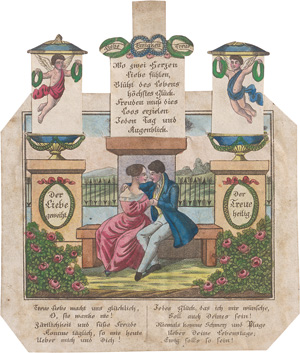 Liebe Einigkeit Treue
Wo zwei Herzen
Liebe fühlen,
Blüht des Lebens
höchstes Glück.
Freuden muß dies
Loos erzielen
Jeden Tag und
Augenblick.
Der
Liebe
geweiht.
Der
Treue
heilig.
Treue Liebe macht uns glücklich,
O, sie wanke nie!
Zärtlichkeit und süße Freude
Komme täglich, so wie heute
Ueber mich und Dich!
Jedes Glück, das ich mir wünsche,
Soll auch Deines sein!
Niemals komme Schmerz und Plage
Ueber Deine Lebenstage,
Ewig soll's so sein!